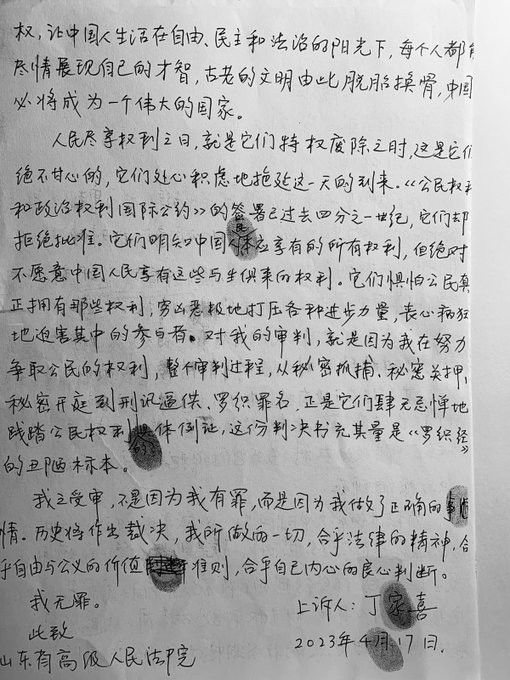 权，让中国人生活在自由、民主和法治的阳光下，每个人都能
尽情展现自己的才智，古老的文明由此脱胎换骨，中国
必将成为一个伟大的国家。
人民尽享权利之日，就是它们特权废除之时，这是它们
绝不甘心的，它们处心积虑地拖延这一天的到来。《公民权利
和政治权利国际公约》的签署已过去四分之一世纪，它们却
拒绝批准。它们明知中国人民应享有的所有权利，但绝对
不愿意中国人民享有这些与生俱来的权利。它们惧怕公民真
正拥有那些权利，穷凶恶极地打压各种进步力量，丧心病狂
地迫害其中的参与者。对我的审判，就是因为我在努力
争取公民的权利，整个审判过程，从秘密抓捕、秘密关押、
秘密开庭到刑讯逼供、罗织罪名，正是它们肆无忌惮地
践踏公民权利的具体例证，这份判决书充其量是《罗织经》
的丑陋标本。
我之受审，不是因为我有罪，而是因为我做了正确的事
情。历史将作出裁决，我所做的一切，合乎法律的精神，合
乎自由与公义的价值准则，合乎自己内心的良心判断。
我无罪。
上诉人：丁家喜
此致
2023年4月17日
山东省高级人民法院